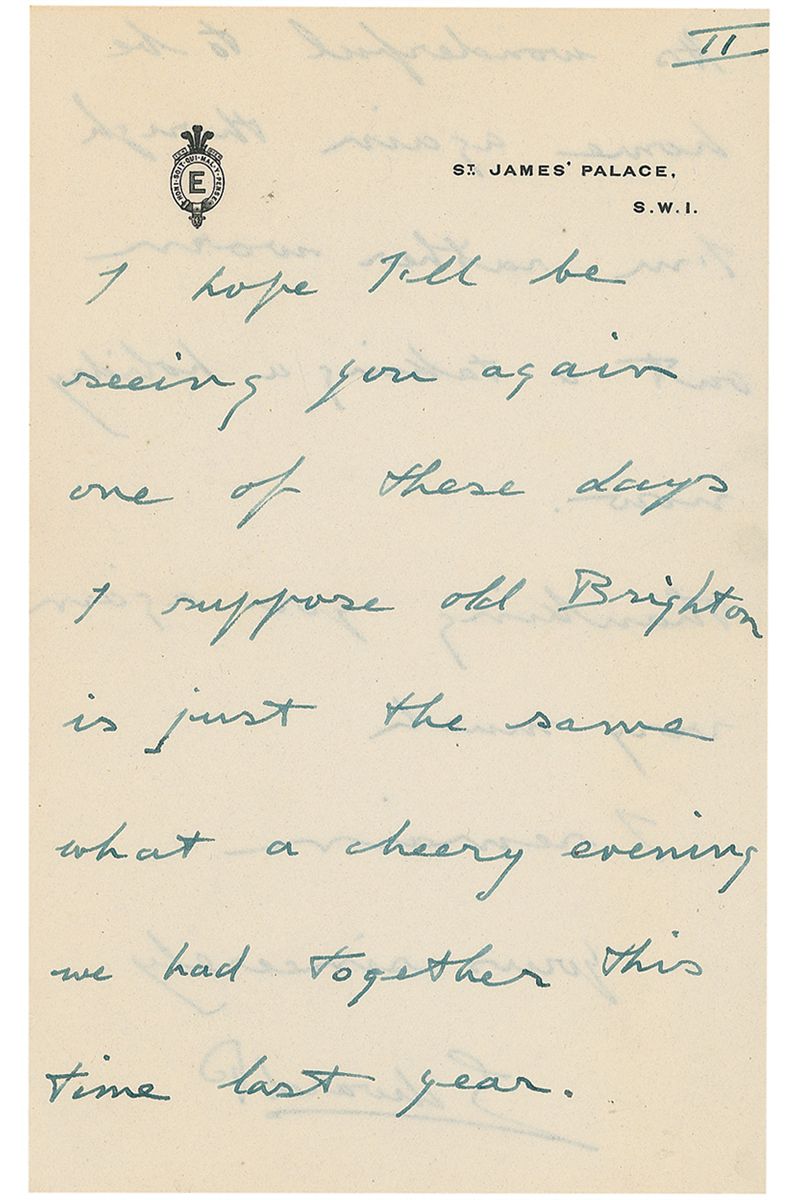 II
HONI·SOIT·QUI·MAL·Y·PENSE
E
ST. JAMES' PALACE,
S.W.1.
I hope I'll be
seeing you again
one of these days
I suppose old Brighton
is just the same
what a cheery evening
we had together this
time last year.